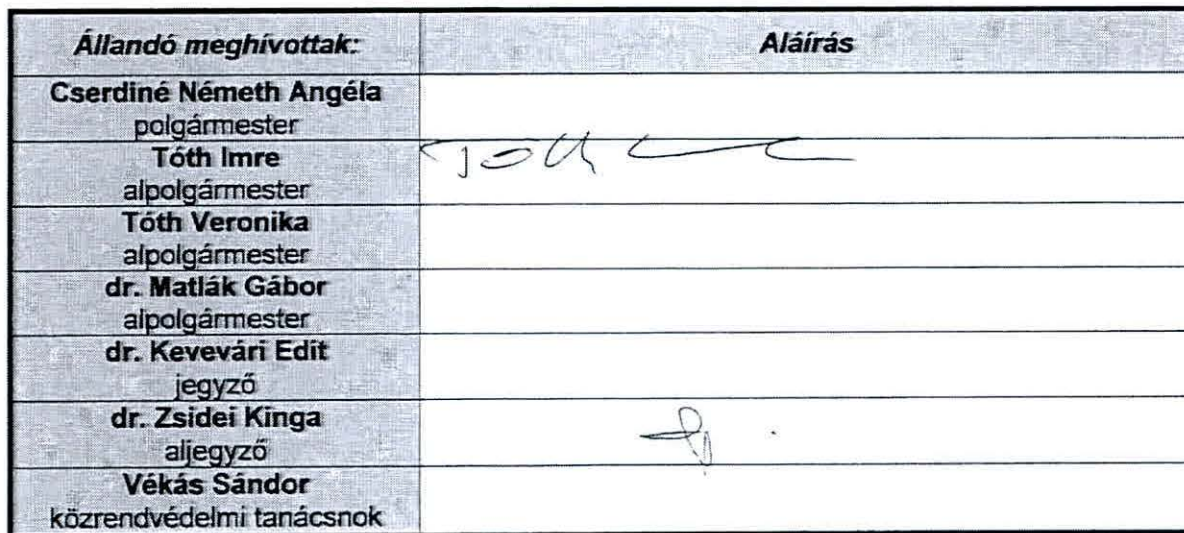 Állandó meghívottak: Aláírás
Cserdiné Németh Angéla
polgármester
Tóth Imre Tóth
alpolgármester
Tóth Veronika
alpolgármester
dr. Matlák Gábor
alpolgármester
dr. Kevevári Edit
jegyző
dr. Zsidei Kinga
aljegyző
Vékás Sándor
közrendvédelmi tanácsnok